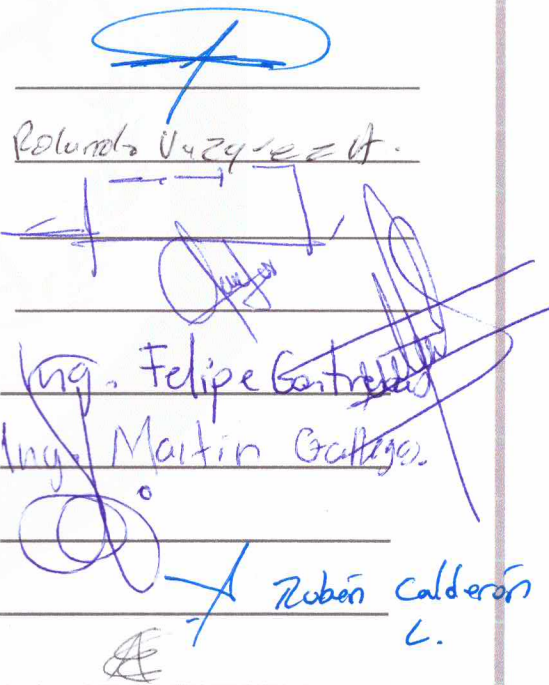 Rolando Vazquez A.
Ing. Felipe Contreras
Ing. Martin Gallego.
Rubén Calderón
L.